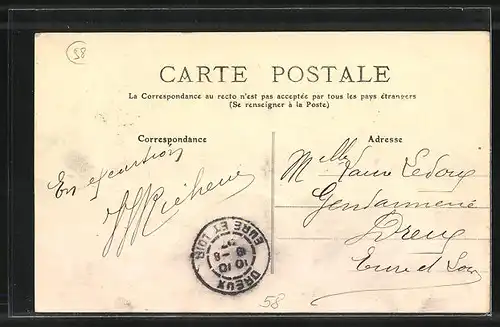 58
CARTE POSTALE
La Correspondance au recto n'est pas acceptée par tous les pays étrangers
(Se renseigner à la Poste)
Correspondance
En excursion
Adresse
Melle Ledoux
Gendarmerie
Dreux
Eure et Loir
DREUX
EURE ET LOIR
10 10
58